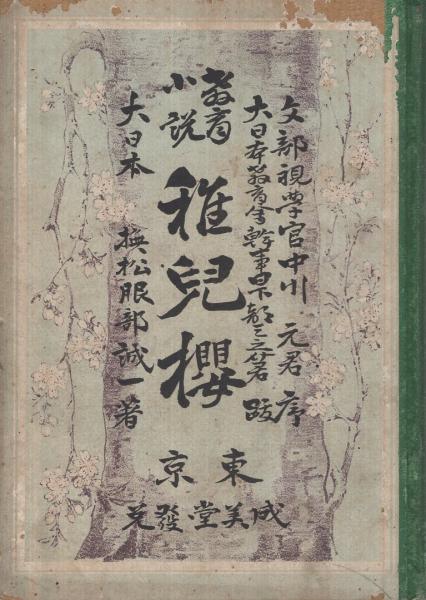 文部視學官中川元君序
大日本教育會幹事日下部三之介君跋
教育
小說
稚兒櫻
大日本 撫松服部誠一著
東京
成美堂發兌